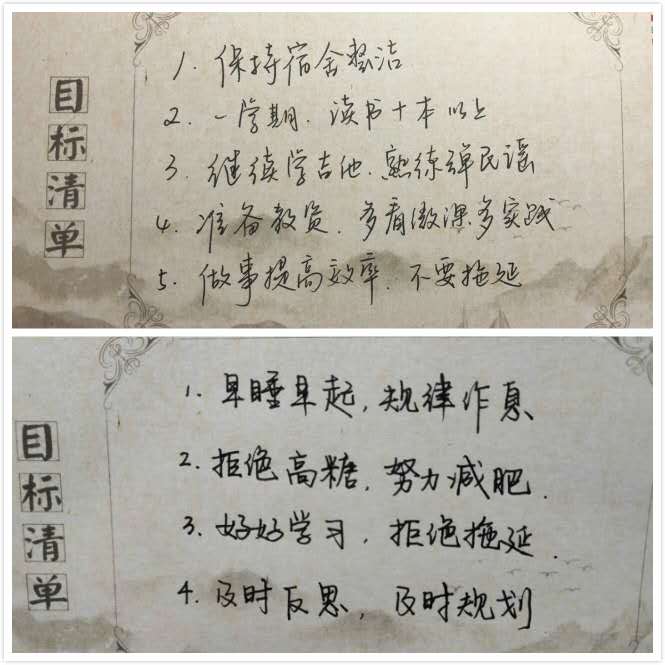 目标清单
1. 保持宿舍整洁
2. 一学期、读书十本以上
3. 继续学吉他.熟练弹民谣
4. 准备教资.多看微课多实践
5. 做事提高效率.不要拖延
目标清单
1. 早睡早起，规律作息
2. 拒绝高糖，努力减肥.
3. 好好学习，拒绝拖延.
4. 及时反思，及时规划